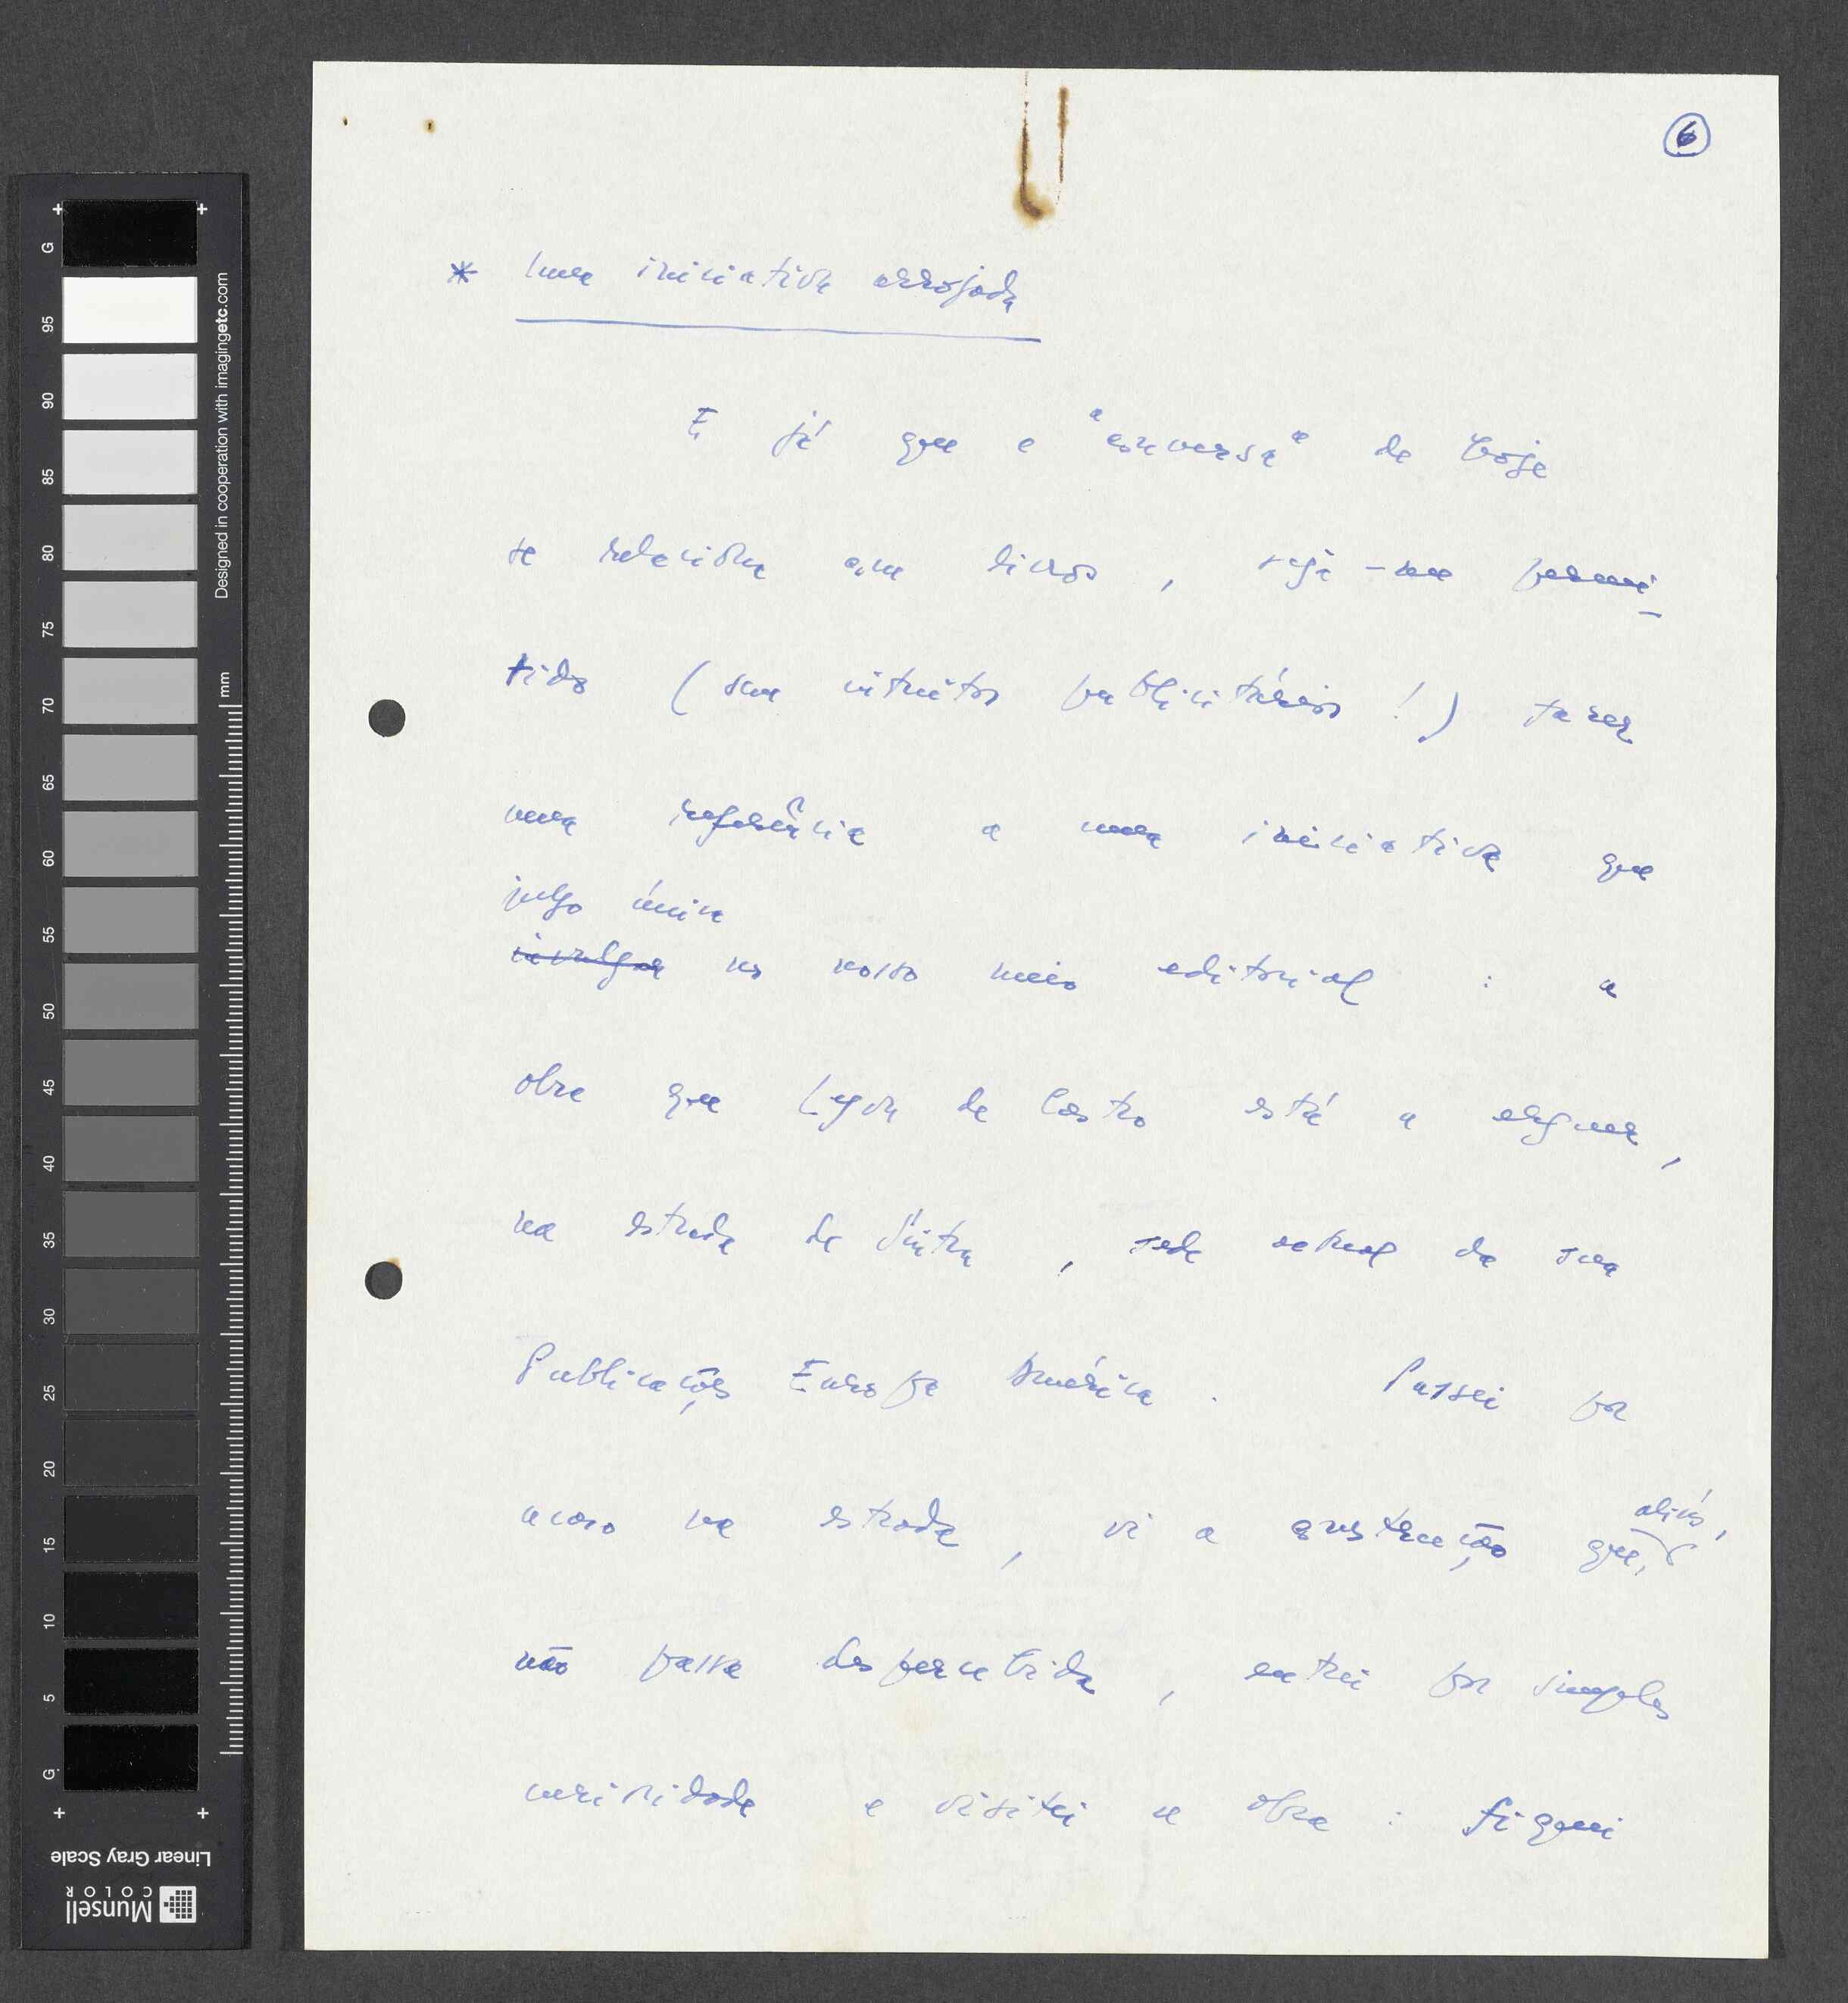 6
* Uma iniciativa arrojada
E já que a "conversa" de hoje
se relaciona com livros, seja-me permi-
tido (sem intuitos publicitários!) fazer
uma referência a uma iniciativa que
julgo única
invulgar no nosso meio editorial : a
obra que Lyon de Castro está a erguer,
na estrada de Sintra, sede actual da sua
Publicações Europa América. Passei por
aliás,
acaso na estrada, vi a construção que,
não passa despercebida, entrei por simples
curiosidade e visitei a obra : fiquei
G
95
90
85
80
75
70
65
60
55
50
45
40
35
30
25
20
15
10
5
G
mm
Designed in cooperation with imagingetc.com
Linear Gray Scale
Munsell
COLOR